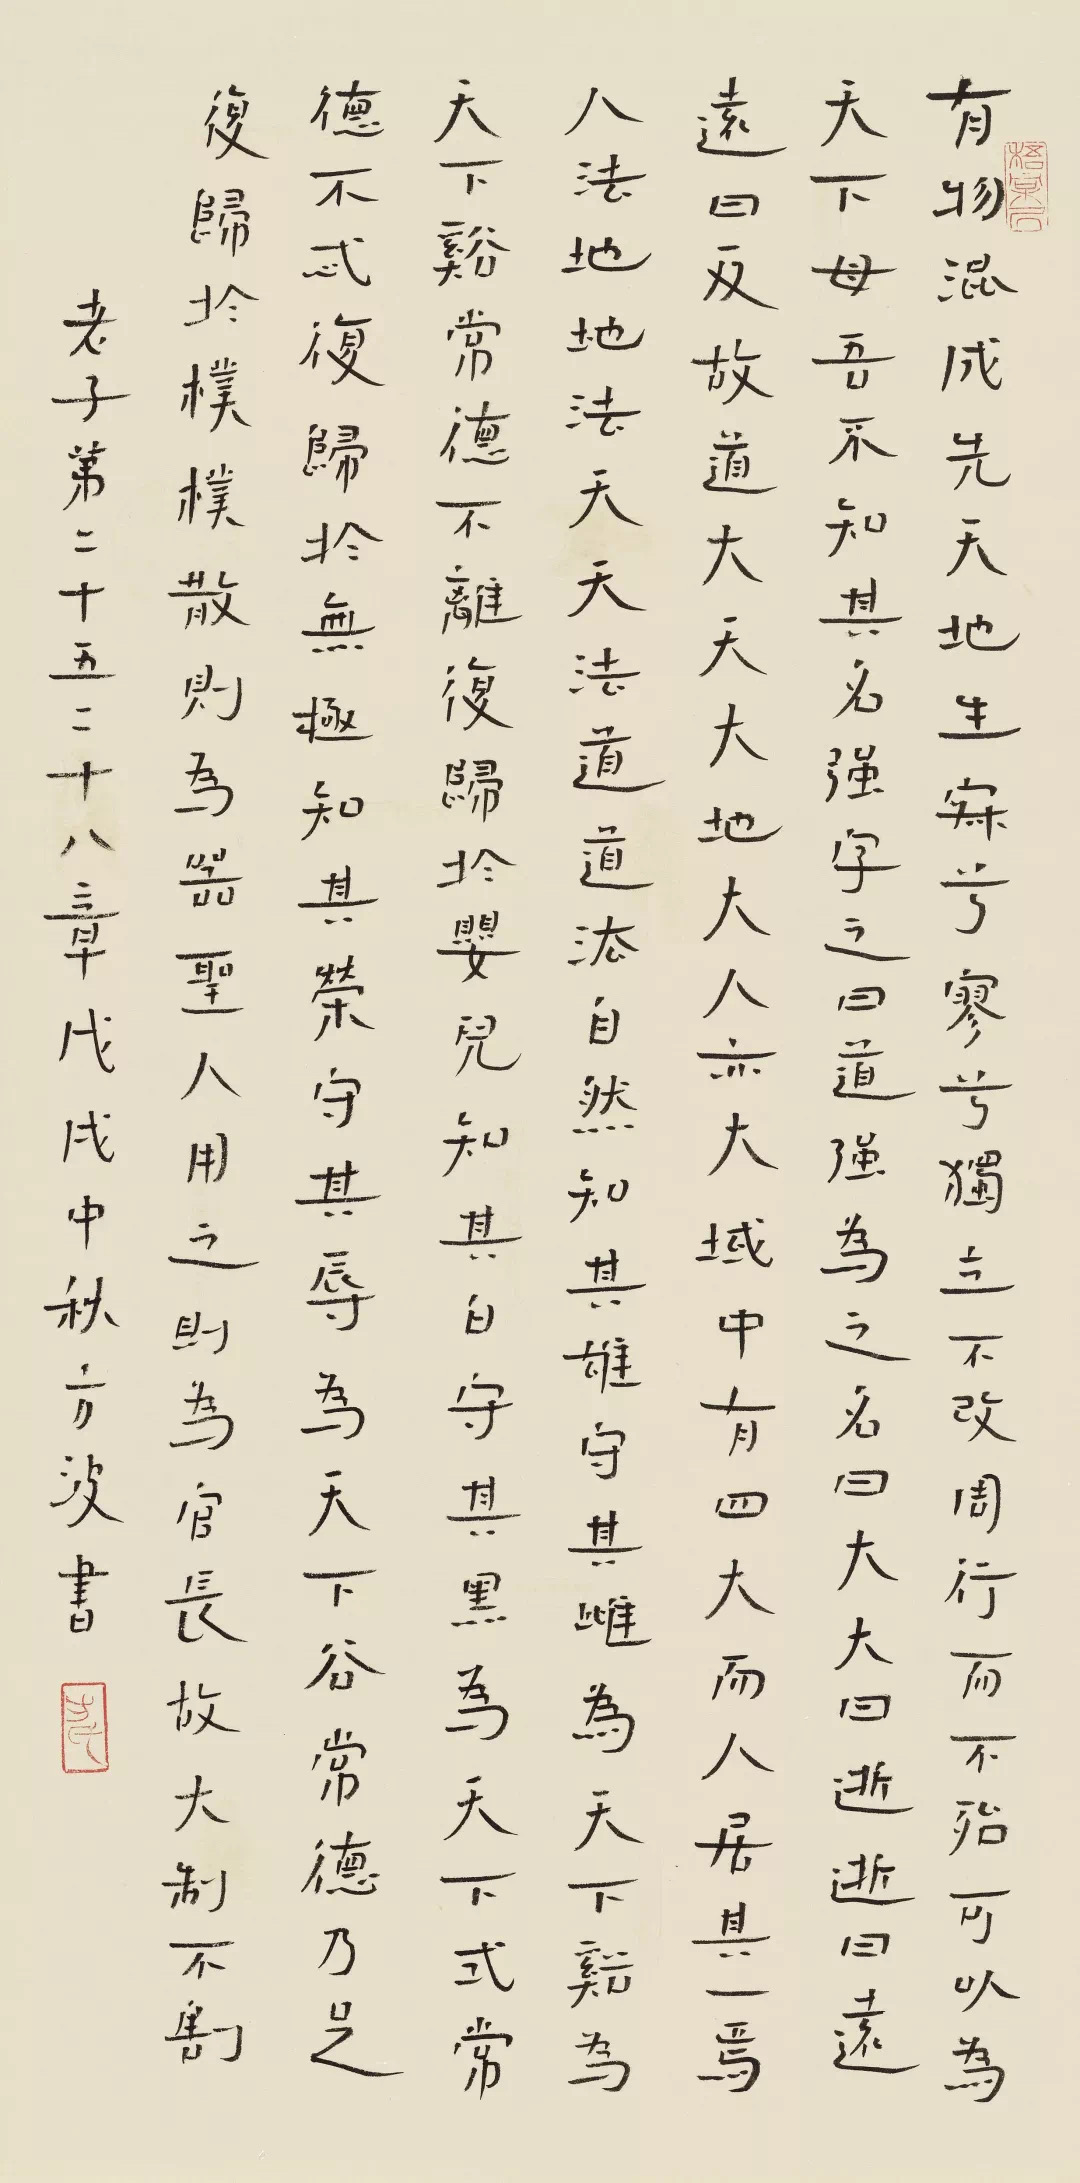 有物混成先天地生寂兮寥兮獨立不改周行而不殆可以為
天下母吾不知其名强字之曰道强為之名曰大大曰逝逝曰遠
遠曰反故道大天大地大人亦大域中有四大而人居其一焉
人法地地法天天法道道法自然知其雄守其雌為天下谿為
天下谿常德不離復歸於嬰兒知其白守其黑為天下式常
德不忒復歸於無極知其榮守其辱為天下谷常德乃足
復歸於樸樸散則為器聖人用之則為官長故大制不割
老子第二十五二十八章戊戌中秋方波書